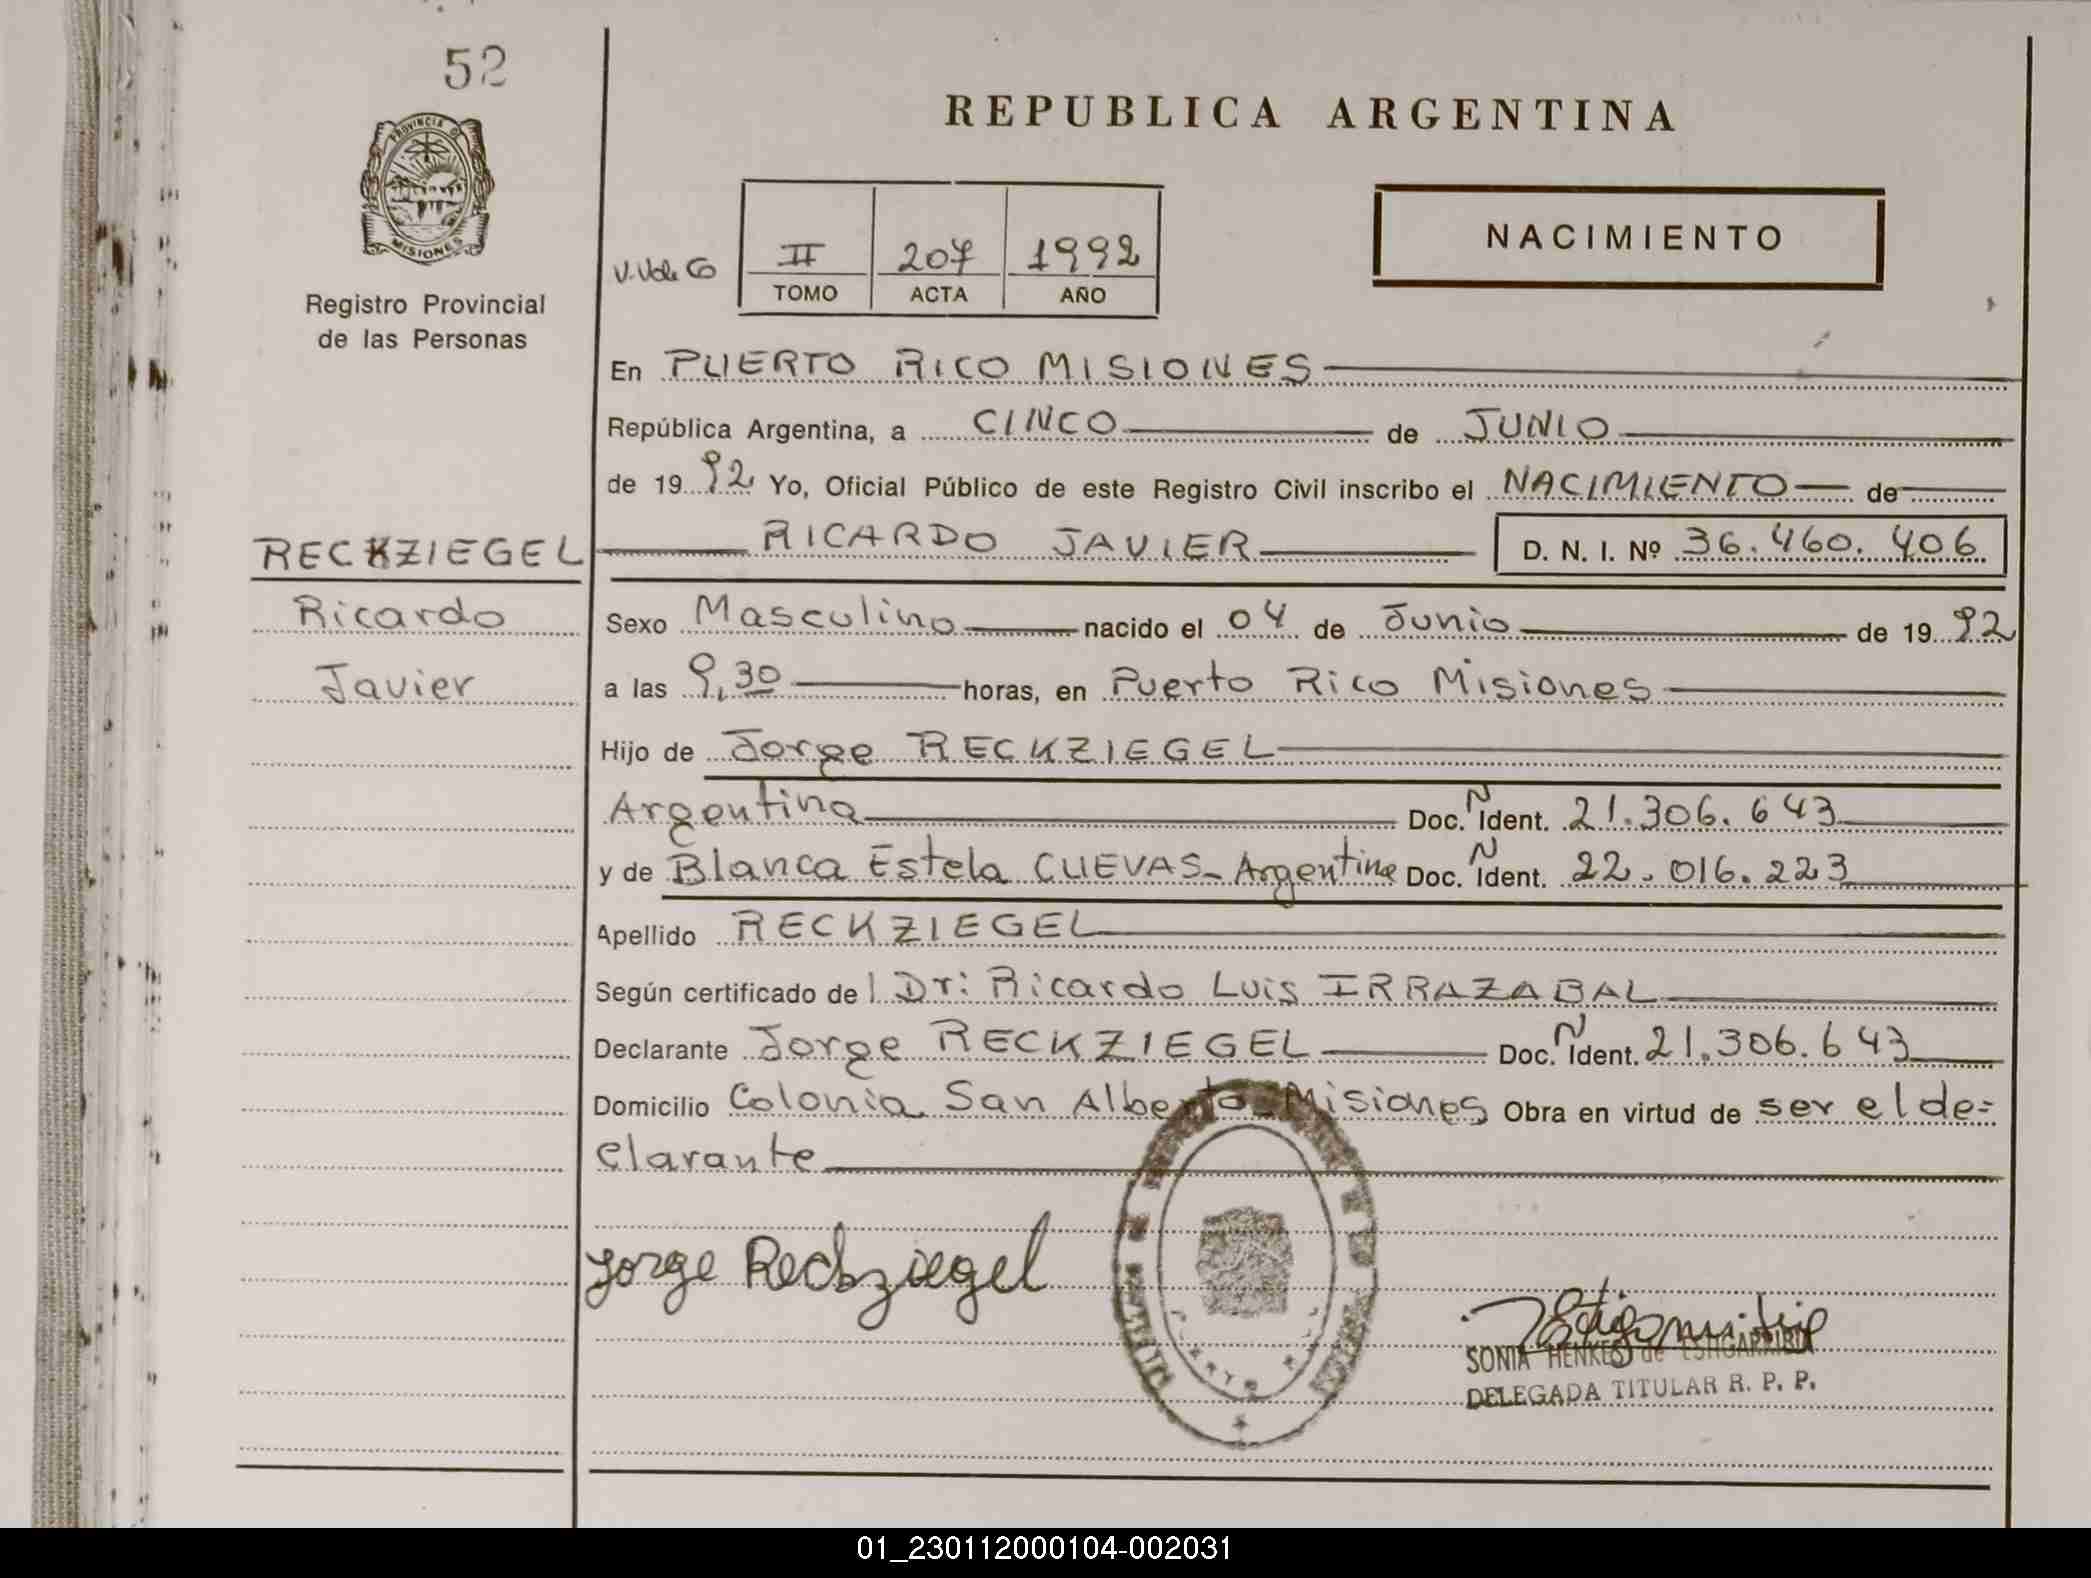 52
REPUBLICA ARGENTINA
PROVINCIA DE
MISIONES
Registro Provincial
de las Personas
II 207 1992
TOMO ACTA AÑO
NACIMIENTO
En PUERTO RICO MISIONES
República Argentina, a CINCO de JUNIO
de 1992 Yo, Oficial Público de este Registro Civil inscribo el NACIMIENTO de
RECKZIEGEL RICARDO JAVIER D. N. I. Nº 36.460.406
Ricardo
Javier
Sexo Masculino nacido el 04 de Junio de 1992
a las 9,30 horas, en Puerto Rico Misiones
Hijo de Jorge RECKZIEGEL
Argentina Doc. Ñ Ident. 21.306.643
y de Blanca Estela CUEVAS - Argentina Doc. Ñ Ident. 22.016.223
Apellido RECKZIEGEL
Según certificado del Dr: Ricardo Luis IRRAZABAL
Declarante Jorge RECKZIEGEL Doc. Ñ Ident. 21.306.643
Domicilio Colonia San Alberto Misiones Obra en virtud de ser el de=
clarante
Jorge Reckziegel
SONIA HENKES de ESTIGARRIBIA
DELEGADA TITULAR R. P. P.
01_230112000104-002031